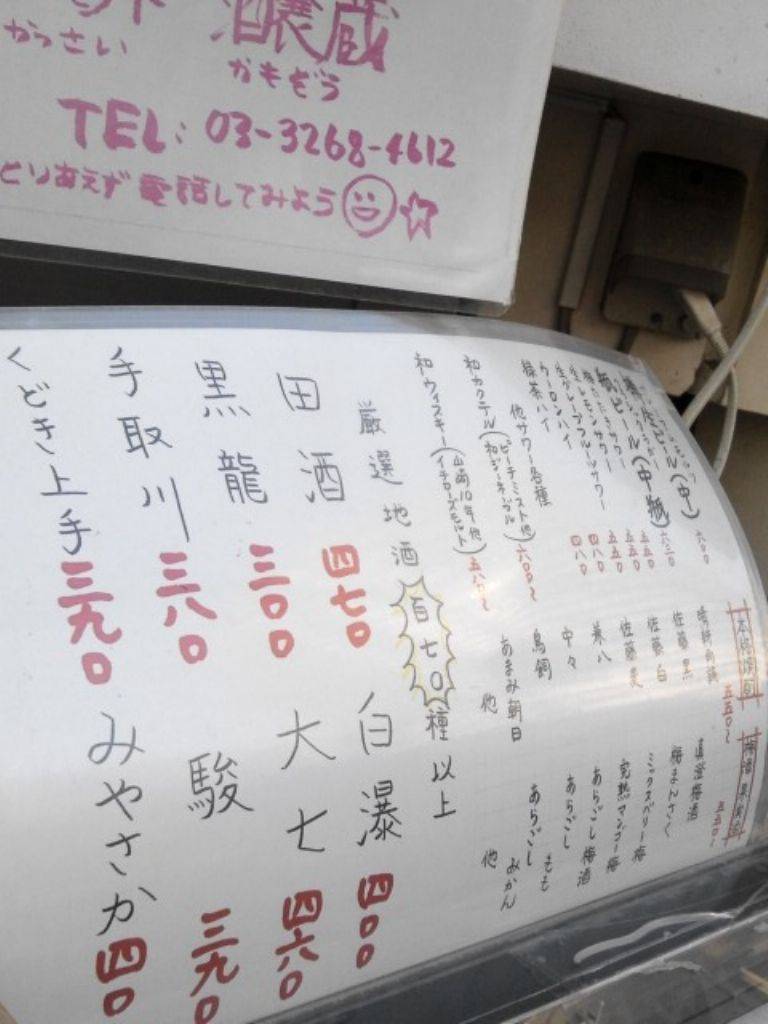 醸蔵
かもぞう
TEL: 03-3268-4612
とりあえず電話してみよう
生ビール(中) 六〇〇
瓶ビール(中瓶) 六三〇
生レモンサワー
生グレープフルーツサワー
ウーロンハイ
緑茶ハイ
他サワー各種
和カクテル(和ジーネ 六〇〇~
和ウィスキー(山崎10年他 イチローズモルト) 五八〇~
五五〇~
佐藤黒
佐藤白
佐藤麦
兼八
中々
鳥飼
あまみ朝日
他
五五〇~
真澄梅酒
梅まんさく
ミックスベリー梅
完熟マンゴー梅
あらごし梅酒
あらごし もも
あらごし みかん
他
厳選地酒百七〇種以上
田酒 四七〇
黒龍 三〇〇
手取川 三八〇
くどき上手 三九〇
白瀑 四〇〇
大七 四六〇
駿 三九〇
みやさか 四〇